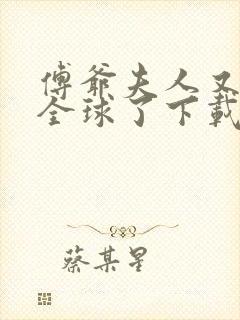 傅爺夫人又
全球了下載
蔡某星